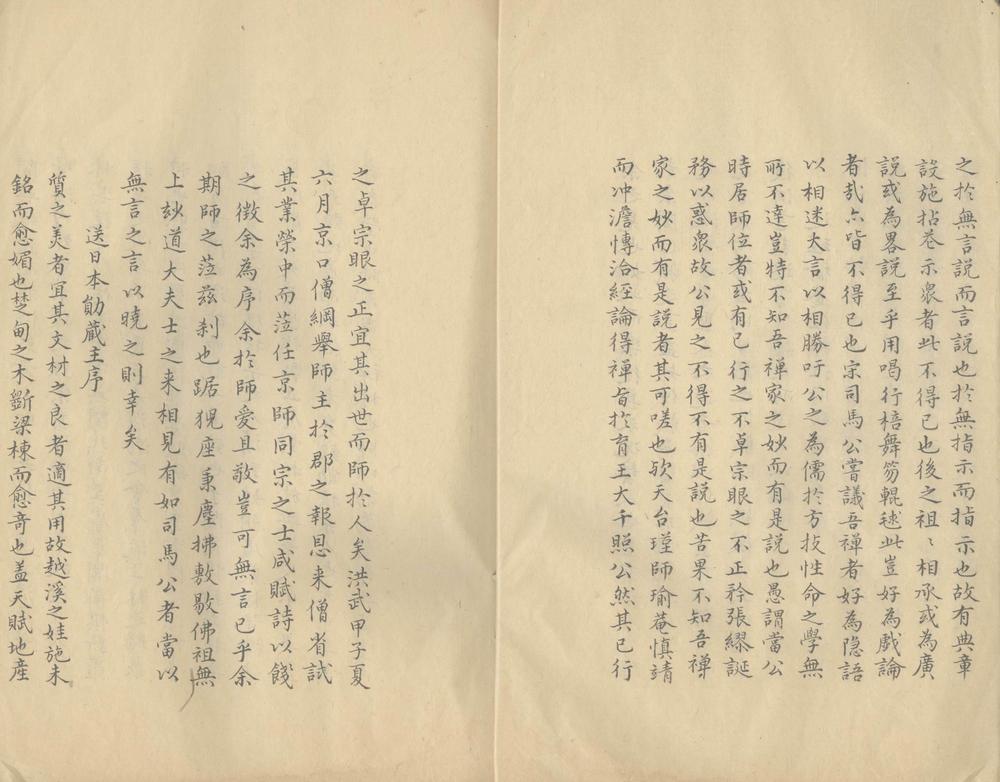 之扵無言說而言說也扵無指示而指示也故有典章
設施拈花示衆者此不得已也後之祖〻相承或為廣
說或為畧說至乎用喝行棓舞笏輥毬此豈好為戲論
者㢤亦皆不得已也宗司馬公嘗議吾禪者好為隠語
以相迷大言以相勝吁公之為儒扵方技性命之學無
所不達豈特不知吾禪家之妙而有是說也愚謂當公
時居師位者或有已行之不卓宗眼之不正矜張繆誕
務以惑衆故公見之不得不有是說也苦果不知吾禪
家之妙而有是說者其可嗟也欤天台瑾師瑜菴慎靖
而冲澹慱洽經論得禪旨扵育王大千照公然其已行
之卓宗眼之正宜其出世而師扵人矣洪武甲子夏
六月京口僧綱舉師主扵郡之報恩来僧省試
其業榮中而蒞任京師同宗之士咸賦詩以餞
之徴余為序余扵師愛且敬豈可無言已乎余
期師之蒞兹刹也踞猊座秉塵拂敷敭佛祖無
上玅道大夫士之来相見有如司馬公者當以
無言之言以曉之則幸矣
送日本勛藏主序
質之美者宜其文材之良者適其用故越溪之娃施朱
鉛而愈媚也楚甸之木斵梁棟而愈竒也盖天賦地産